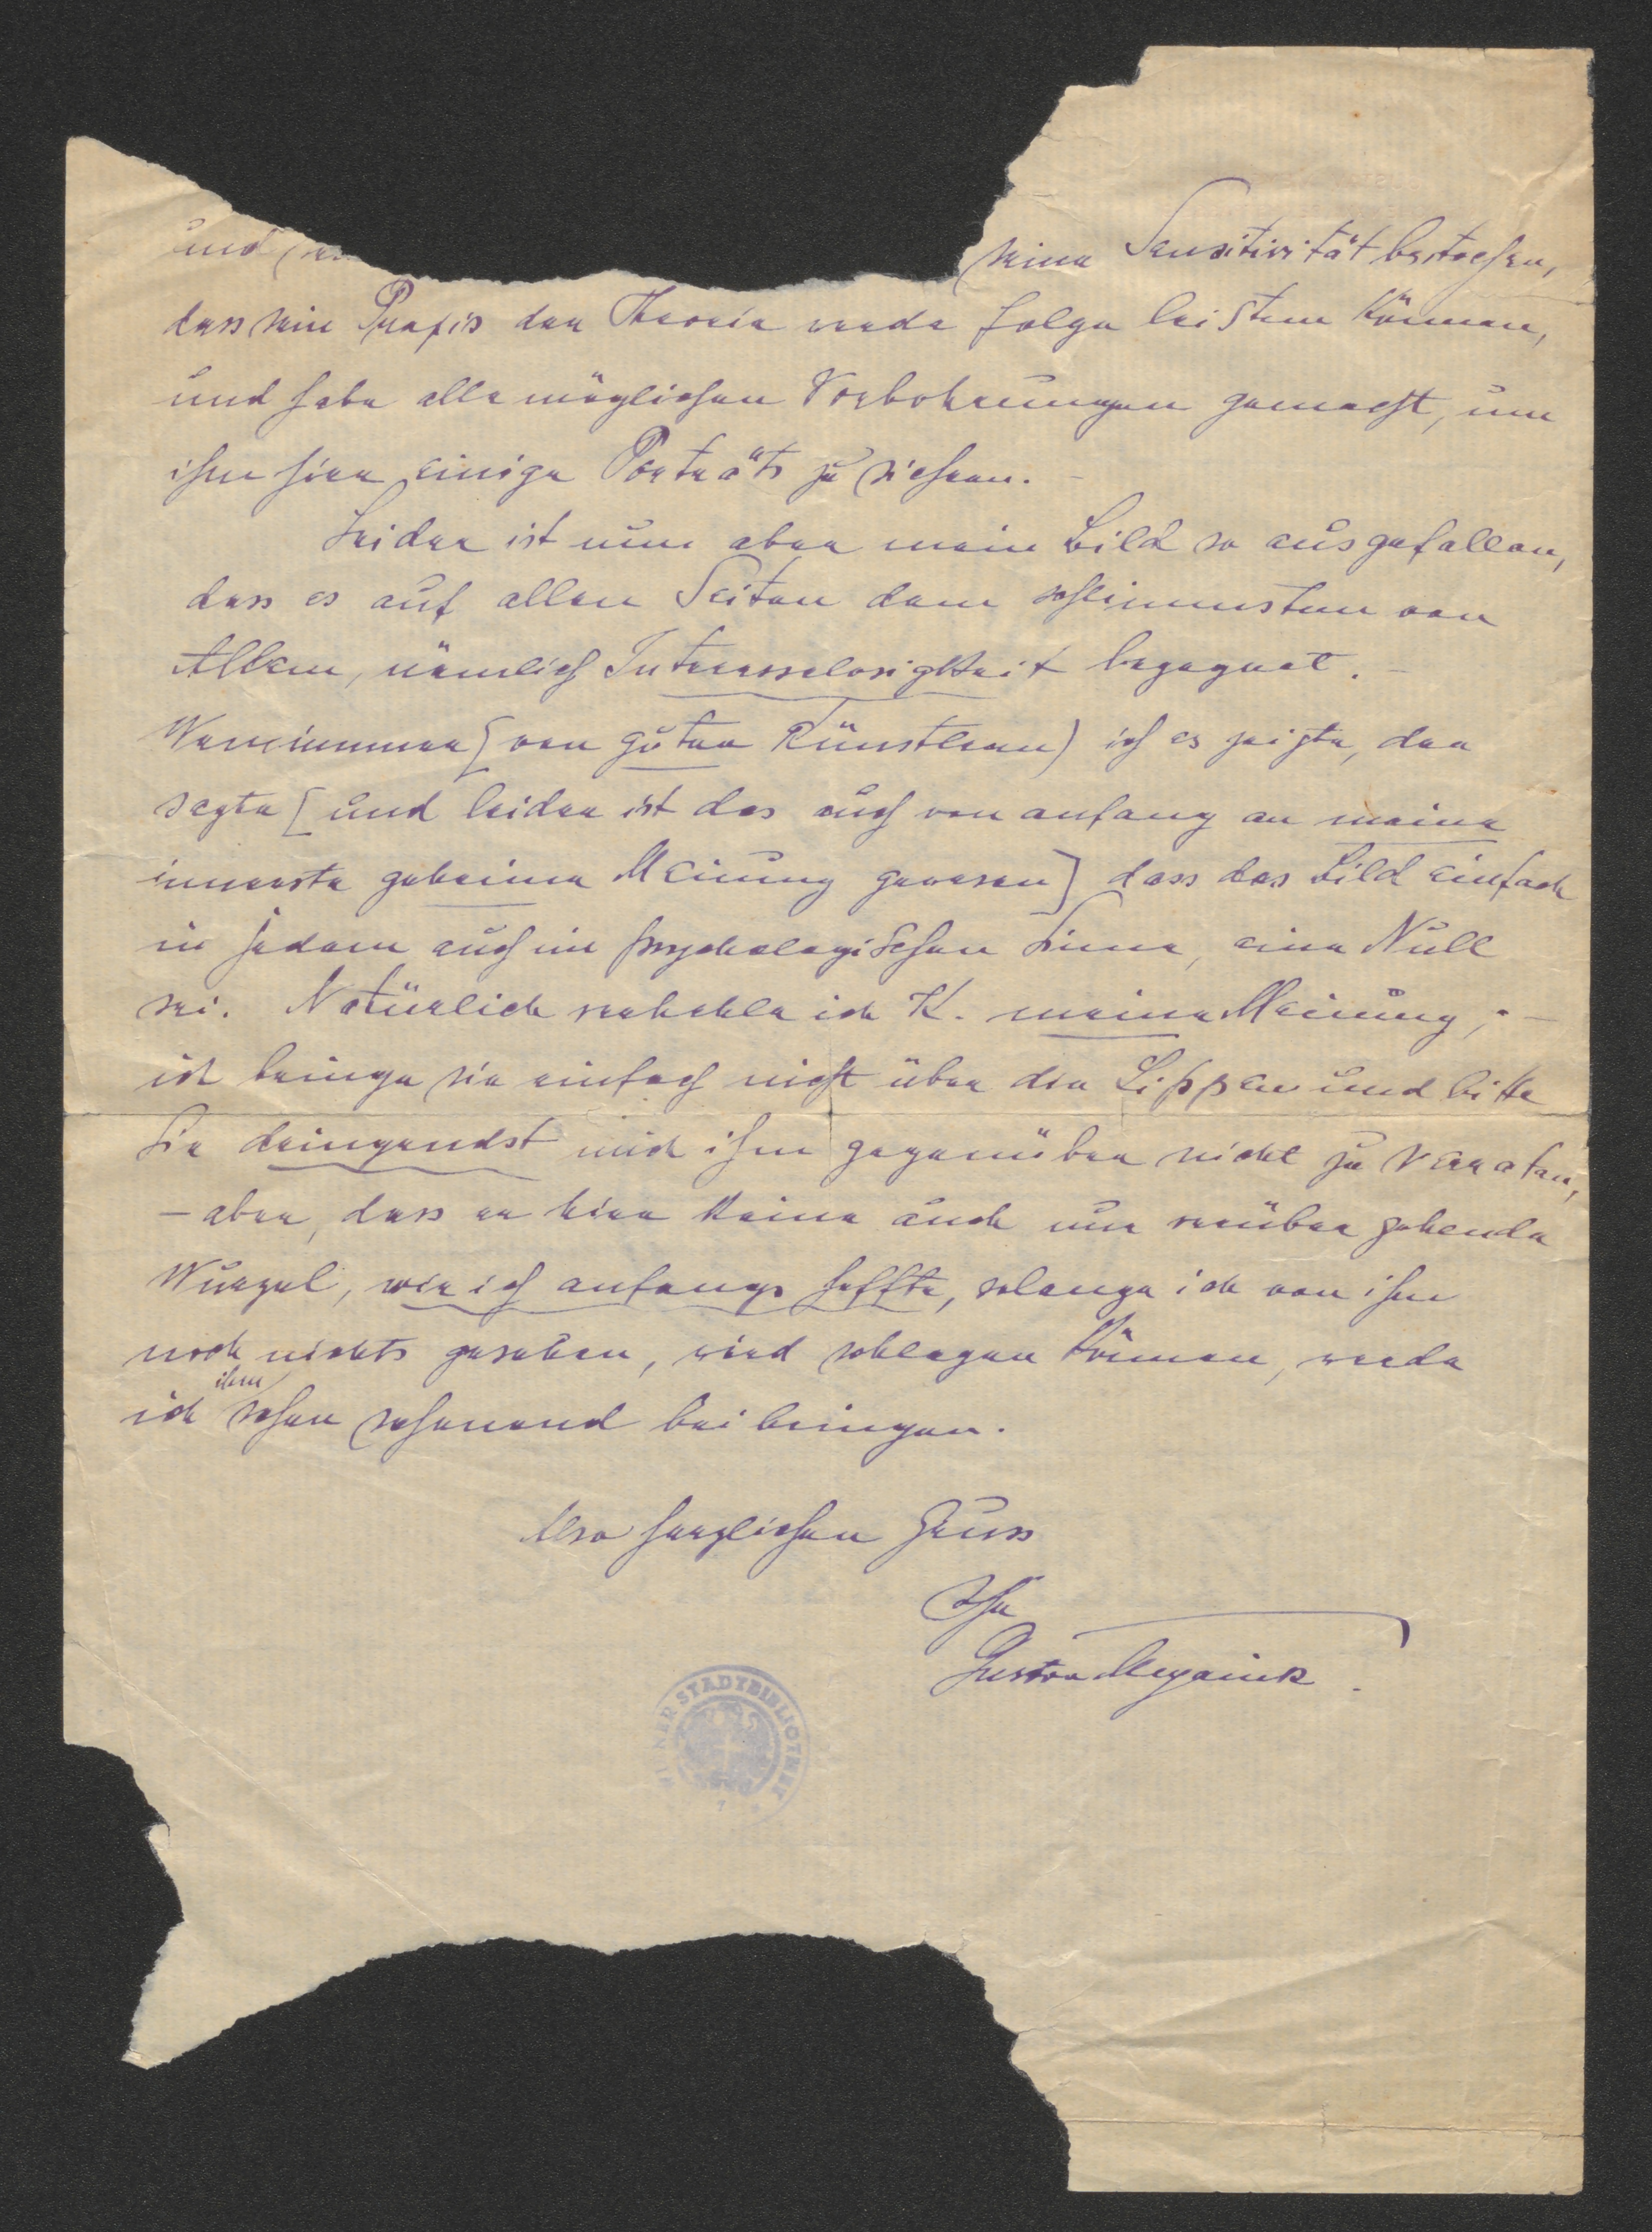 und
seine Sensitivität bestochen,
dass seine Praxis der Theorie werde folge leisten können,
und habe alle möglichen Vorbohrungen gemacht, um
ihm hier einige Porträts zu sichern. –
Leider ist nun aber mein Bild so ausgefallen,
dass es auf allen Seiten dem schlimmsten von
Allem, nämlich Interesselosigkeit begegnet. –
Wem immer (von guten Künstlern) ich es zeigte, der
sagte [und leider ist das auch von anfang an meine
innerste geheime Meinung gewesen] dass das Bild einfach
in jedem auch im psychologischen Sinne, eine Null
sei. Natürlich verhehle ich K. meine Meinung, –
ich bringe sie einfach nicht über die Lippen und bitte
Sie dringendst mich ihm gegenüber nicht zu verraten,
– aber, dass er hier keine auch nur vorüber gehende
Wurzel, wie ich anfangs hoffte, solange ich von ihm
noch nichts gesehen, wird schlagen können, werde
ich ihm schon schonend bei bringen.
Also herzlichen Gruss
Ihr
Gustav Meyrink.
WIENER STADTBIBLIOTHEK